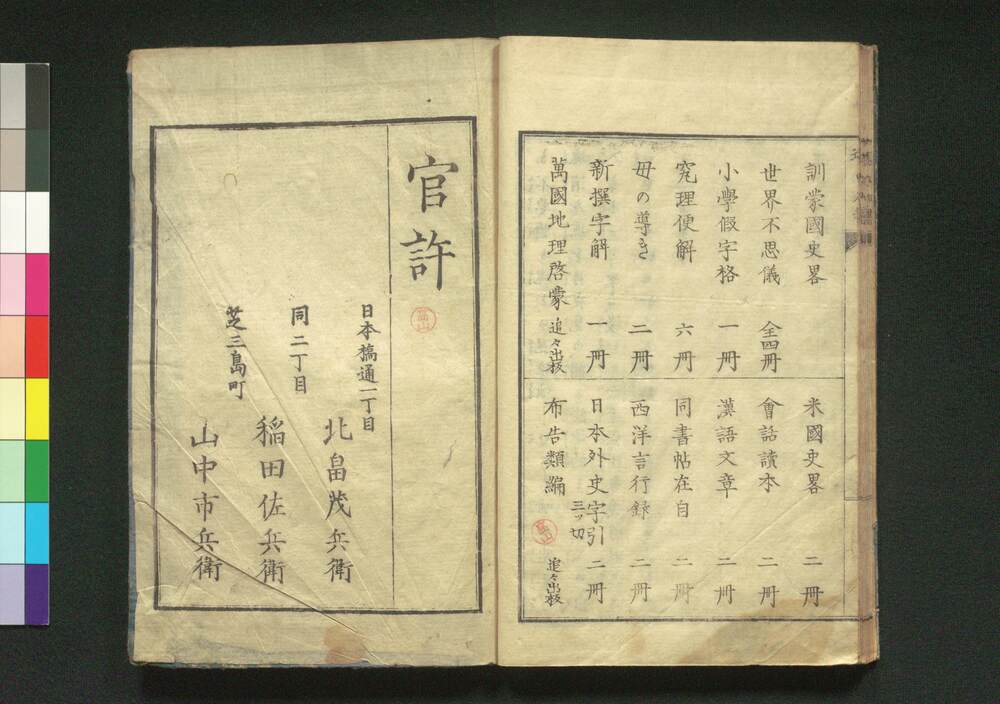 訓蒙國史畧
世界不思儀 全四冊
小學假字格 一冊
究理便解 六冊
母の導き 二冊
新撰字解 一冊
萬國地理啓蒙 追々出板
米國史畧 二冊
會話讀本 二冊
漢語文章 二冊
同書帖在自 二冊
西洋言行録 二冊
日本外史字引 三ッ切 二冊
布告類編 追々出板
官許
日本橋通一丁目
北畠茂兵衛
同二丁目
稲田佐兵衛
芝三島町
山中市兵衛